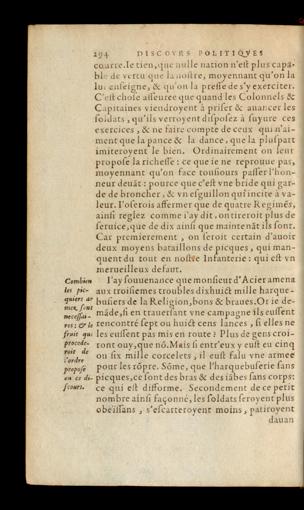 294 DISCOVRS POLITIQVES
courre. Ie tien, que nulle nation n'est plus capa-
ble de vertu que la nostre, moyennant qu'on la
lui enseigne, & qu'on la presse de s'y exerciter.
C'est chose asseuree que quand les Colonnels &
Capitaines viendroyent à priser & auancer les
soldats, qu'ils verroyent disposez à suyure ces
exercices, & ne faire compte de ceux qui n'ai-
ment que la pance & la dance, que la pluspart
imiteroyent le bien. Ordinairement on leur
propose la richesse: ce que ie ne reprouue pas,
moyennant qu'on face tousiours passer l'hon-
neur deuāt: pource que c'est vne bride qui gar-
de de broncher, & vn esguillon qui incite à va-
leur. I'oserois affermer que de quatre Regimēs,
ainsi reglez comme i'ay dit, on tireroit plus de
seruice, que de dix ainsi que maintenāt ils sont.
Car premierement, on seroit certain d'auoir
deux moyens bataillons de picques, qui man-
quent du tout en nostre Infanterie: qui est vn
merueilleux defaut.
I'ay souuenance que monsieur d'Acier amena
aux troisiemes troubles dixhuict mille harque-
busiers de la Religion, bons & braues. Or ie de-
māde, si en trauersant vne campagne ils eussent
rencontré sept ou huict cens lances, si elles ne
les eussent pas mis en route? Plus de gens croi-
ront ouy, que nō. Mais si entr'eux y eust eu cinq
ou six mille corcelets, il eust falu vne armee
pour les rōpre. Sōme, que l'harquebuserie sans
picques, ce sont des bras & des iābes sans corps:
ce qui est difforme. Secondement de ce petit
nombre ainsi façonné, les soldats seroyent plus
obeissans, s'escarteroyent moins, patiroyent
dauan
Combien
les pic-
quiers ar
mez sont
necessai-
res: & le
fruit qui
procede-
roit de
l'ordre
propose
en ce di-
scours.